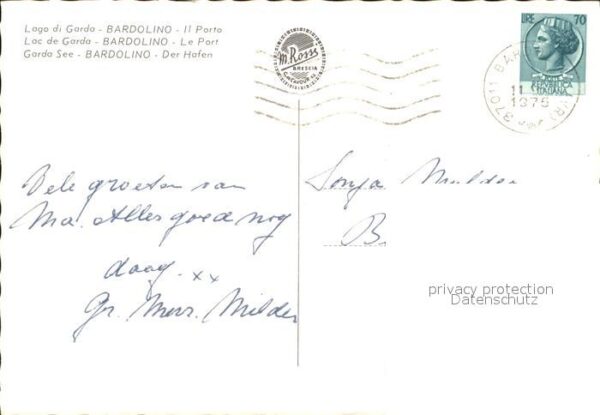 Lago di Garda - BARDOLINO - Il Porto
Lac de Garda - BARDOLINO - Le Port
Garda See - BARDOLINO - Der Hafen
M. Rossi
BRESCIA
LIRE 70
REPUBBLICA
ITALIANA
37011 BAR
11
1976
Vele groeten van
Ma. Alles goed nog
daag. xx
Gr. Mevr. Milder
Sonja Mulder
B.
privacy protection
Datenschutz